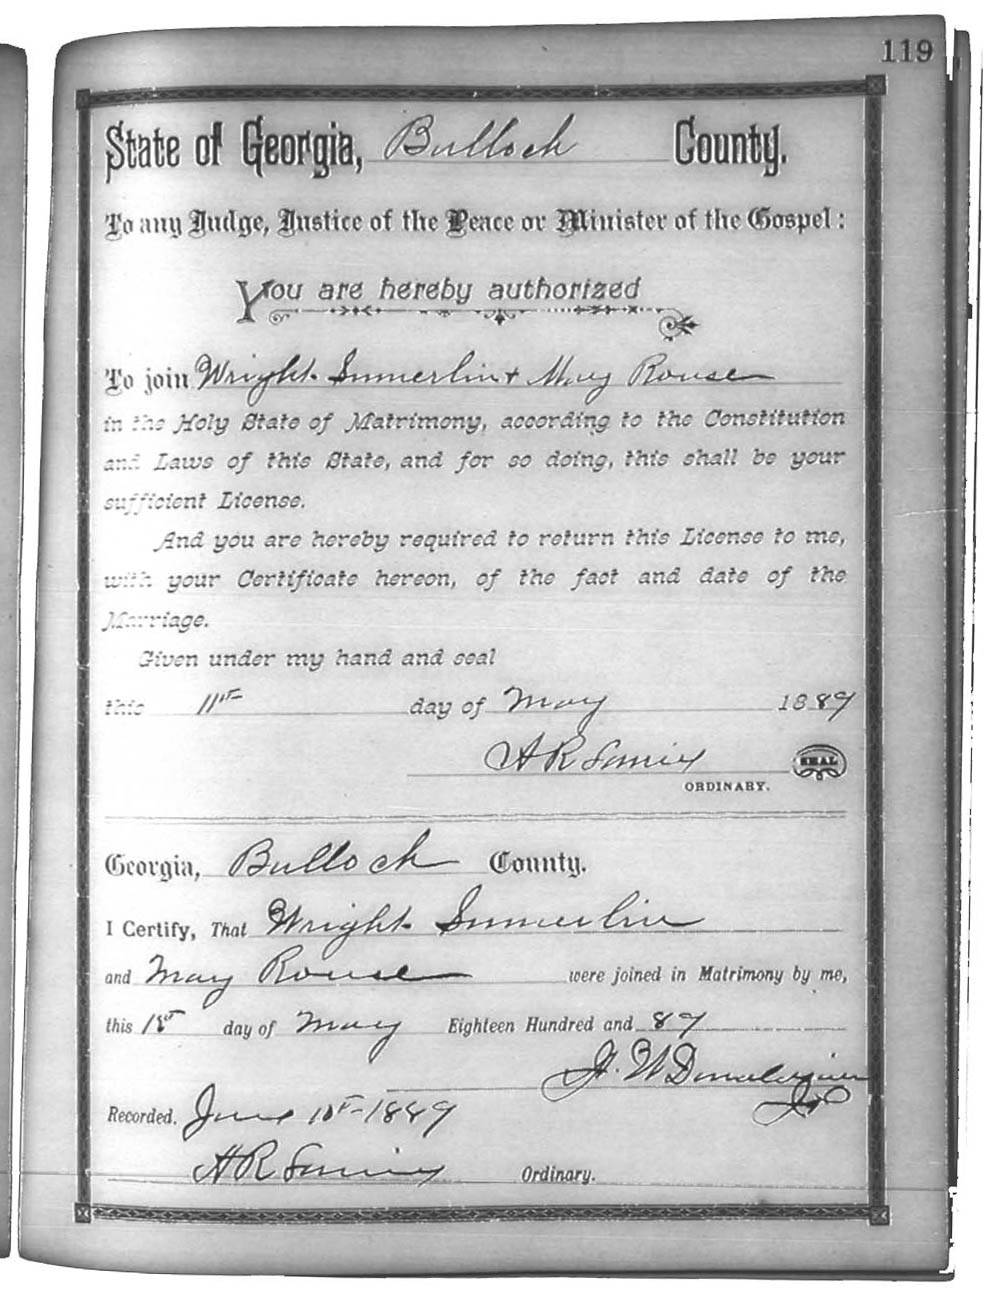 119
State of Georgia, Bulloch County.
To any Judge, Justice of the Peace or Minister of the Gospel:
You are hereby authorized
To join Wright Summerlin + Mary Rouse
in the Holy State of Matrimony, according to the Constitution
and Laws of this State, and for so doing, this shall be your
sufficient License.
And you are hereby required to return this License to me,
with your Certificate hereon, of the fact and date of the
Marriage.
Given under my hand and seal
this 11th day of May 1889
A R Lanier SEAL
ORDINARY.
Georgia, Bulloch County.
I Certify, That Wright Summerlin
and Mary Rouse were joined in Matrimony by me,
this day of May Eighteen Hundred and 89
J. W Donaldson
Recorded, June 1889
A R Lanier Ordinary.